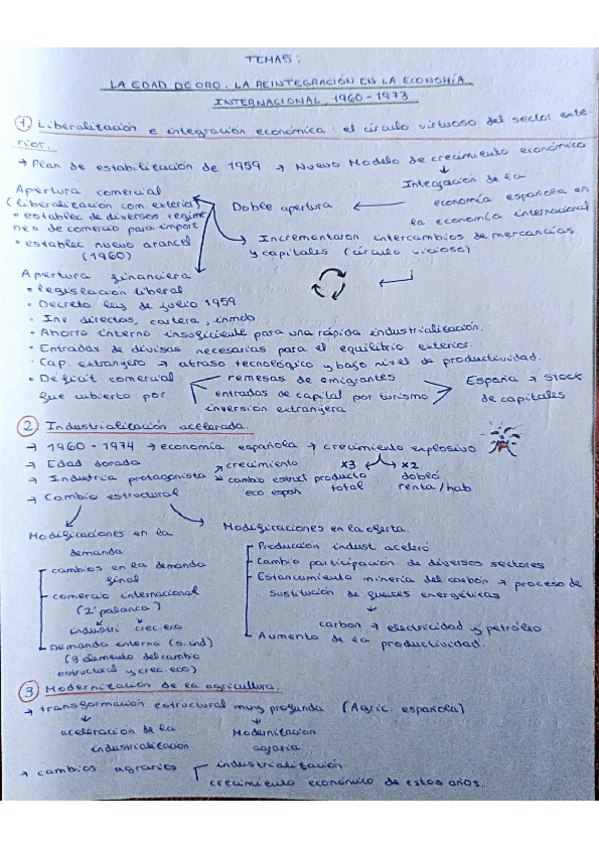 TEMA 5:
LA EDAD DE ORO. LA REINTEGRACIÓN EN LA ECONOMÍA
INTERNACIONAL, 1960-1973
① Liberalización e integración económica: el círculo virtuoso del sector exte-
rior.
→ Plan de estabilización de 1959 → Nuevo Modelo de crecimiento económico
Integración de la
economía española en
la economía internacional
Doble apertura
Apertura comercial
(liberalización com. exterior)
• establec de diversos regime
nes de comercio para import
• establec nuevo arancel
(1960)
Incrementaron intercambios de mercancías
y capitales (círculo vicioso)
Apertura financiera
• Legislación liberal
• Decreto ley de julio 1959
• Inv directas, cartera, inmob
• Ahorro interno insuficiente para una rápida industrialización.
• Entradas de divisas necesarias para el equilibrio exterior.
• Cap. extranjero → atraso tecnológico y bajo nivel de productividad.
• Déficit comercial
que cubierto por
remesas de emigrantes
entradas de capital por turismo
inversión extranjera
España → stock
de capitales
② Industrialización acelerada.
→ 1960-1974 → economía española → crecimiento explosivo
→ Edad dorada
→ Industria protagonista
→ crecimiento
→ cambio estruct
eco españ
x3 x2
producto dobló
total renta/hab
→ Cambio estructural
Modificaciones en la
demanda
cambios en la demanda
final
comercio internacional
(2ª palanca)
industri crec. eco
Demanda interna (s. ind)
(3 elemento del cambio
estructural y crec. eco)
Modificaciones en la oferta.
Producción indust aceleró
Cambio participación de diversos sectores
Estancamiento minería del carbón → proceso de
sustitución de fuentes energéticas
carbon → electricidad y petróleo
Aumento de la productividad.
③ Modernización de la agricultura.
→ transformación estructural muy profunda (Agric. española)
aceleración de la
industrialización
Modernización
agraria
→ cambios agrarios
industrialización
crecimiento económico de estos años.